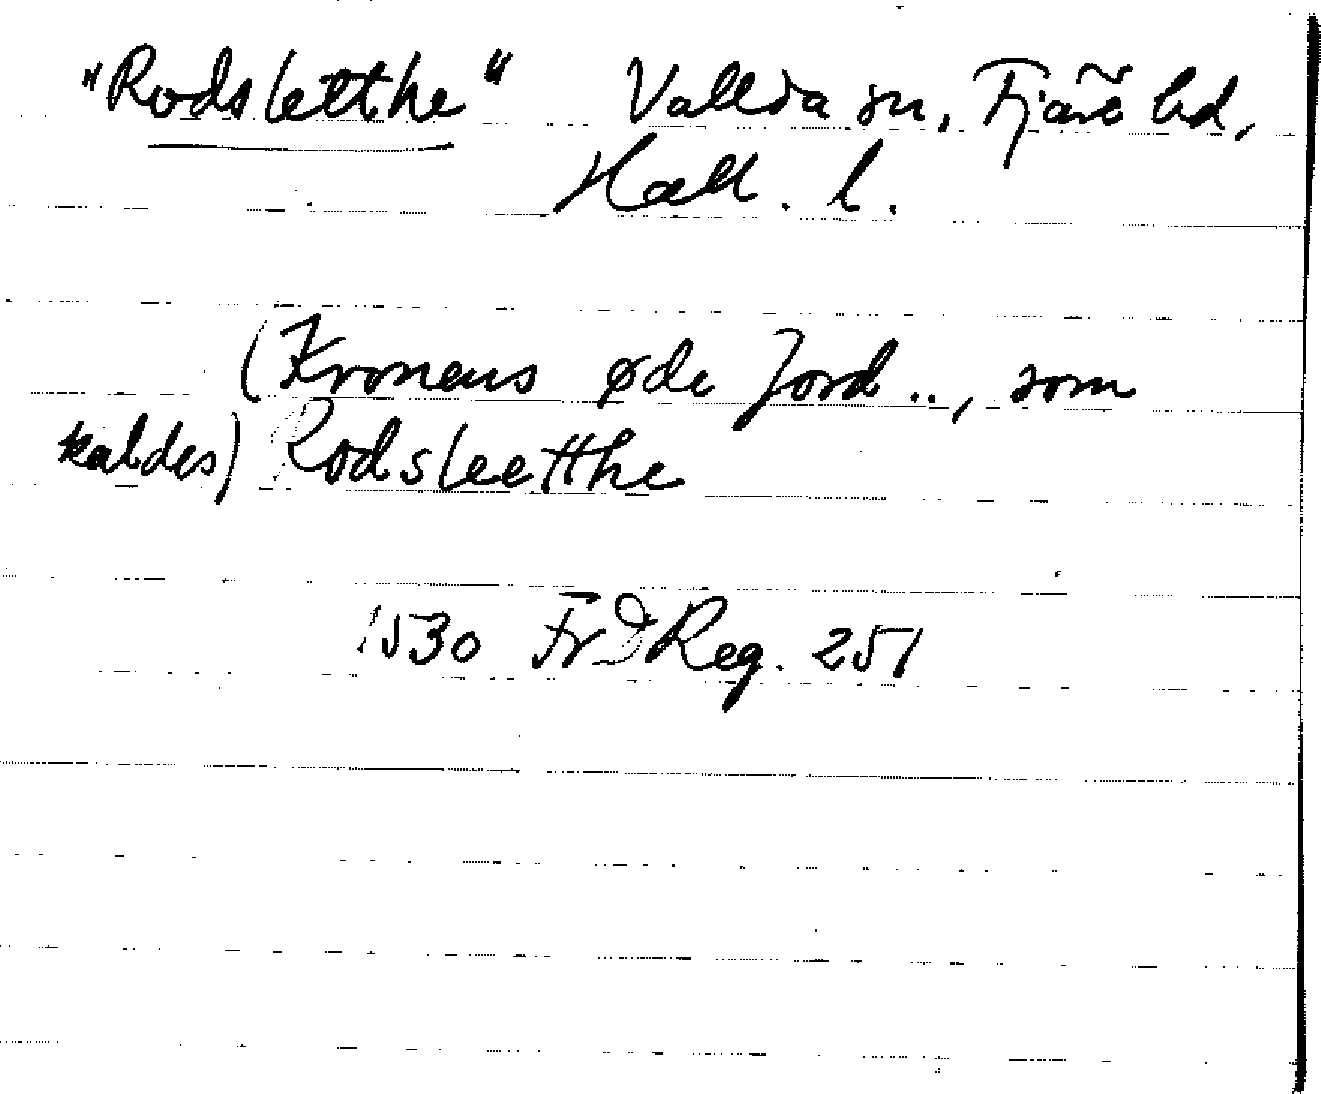 "Rodsletthe" Vallda sn, Fjäre hd,
Hall. l.
(Kronens øde Jord .., som
kaldes) Rodsleetthe
1530 FrIReg. 251